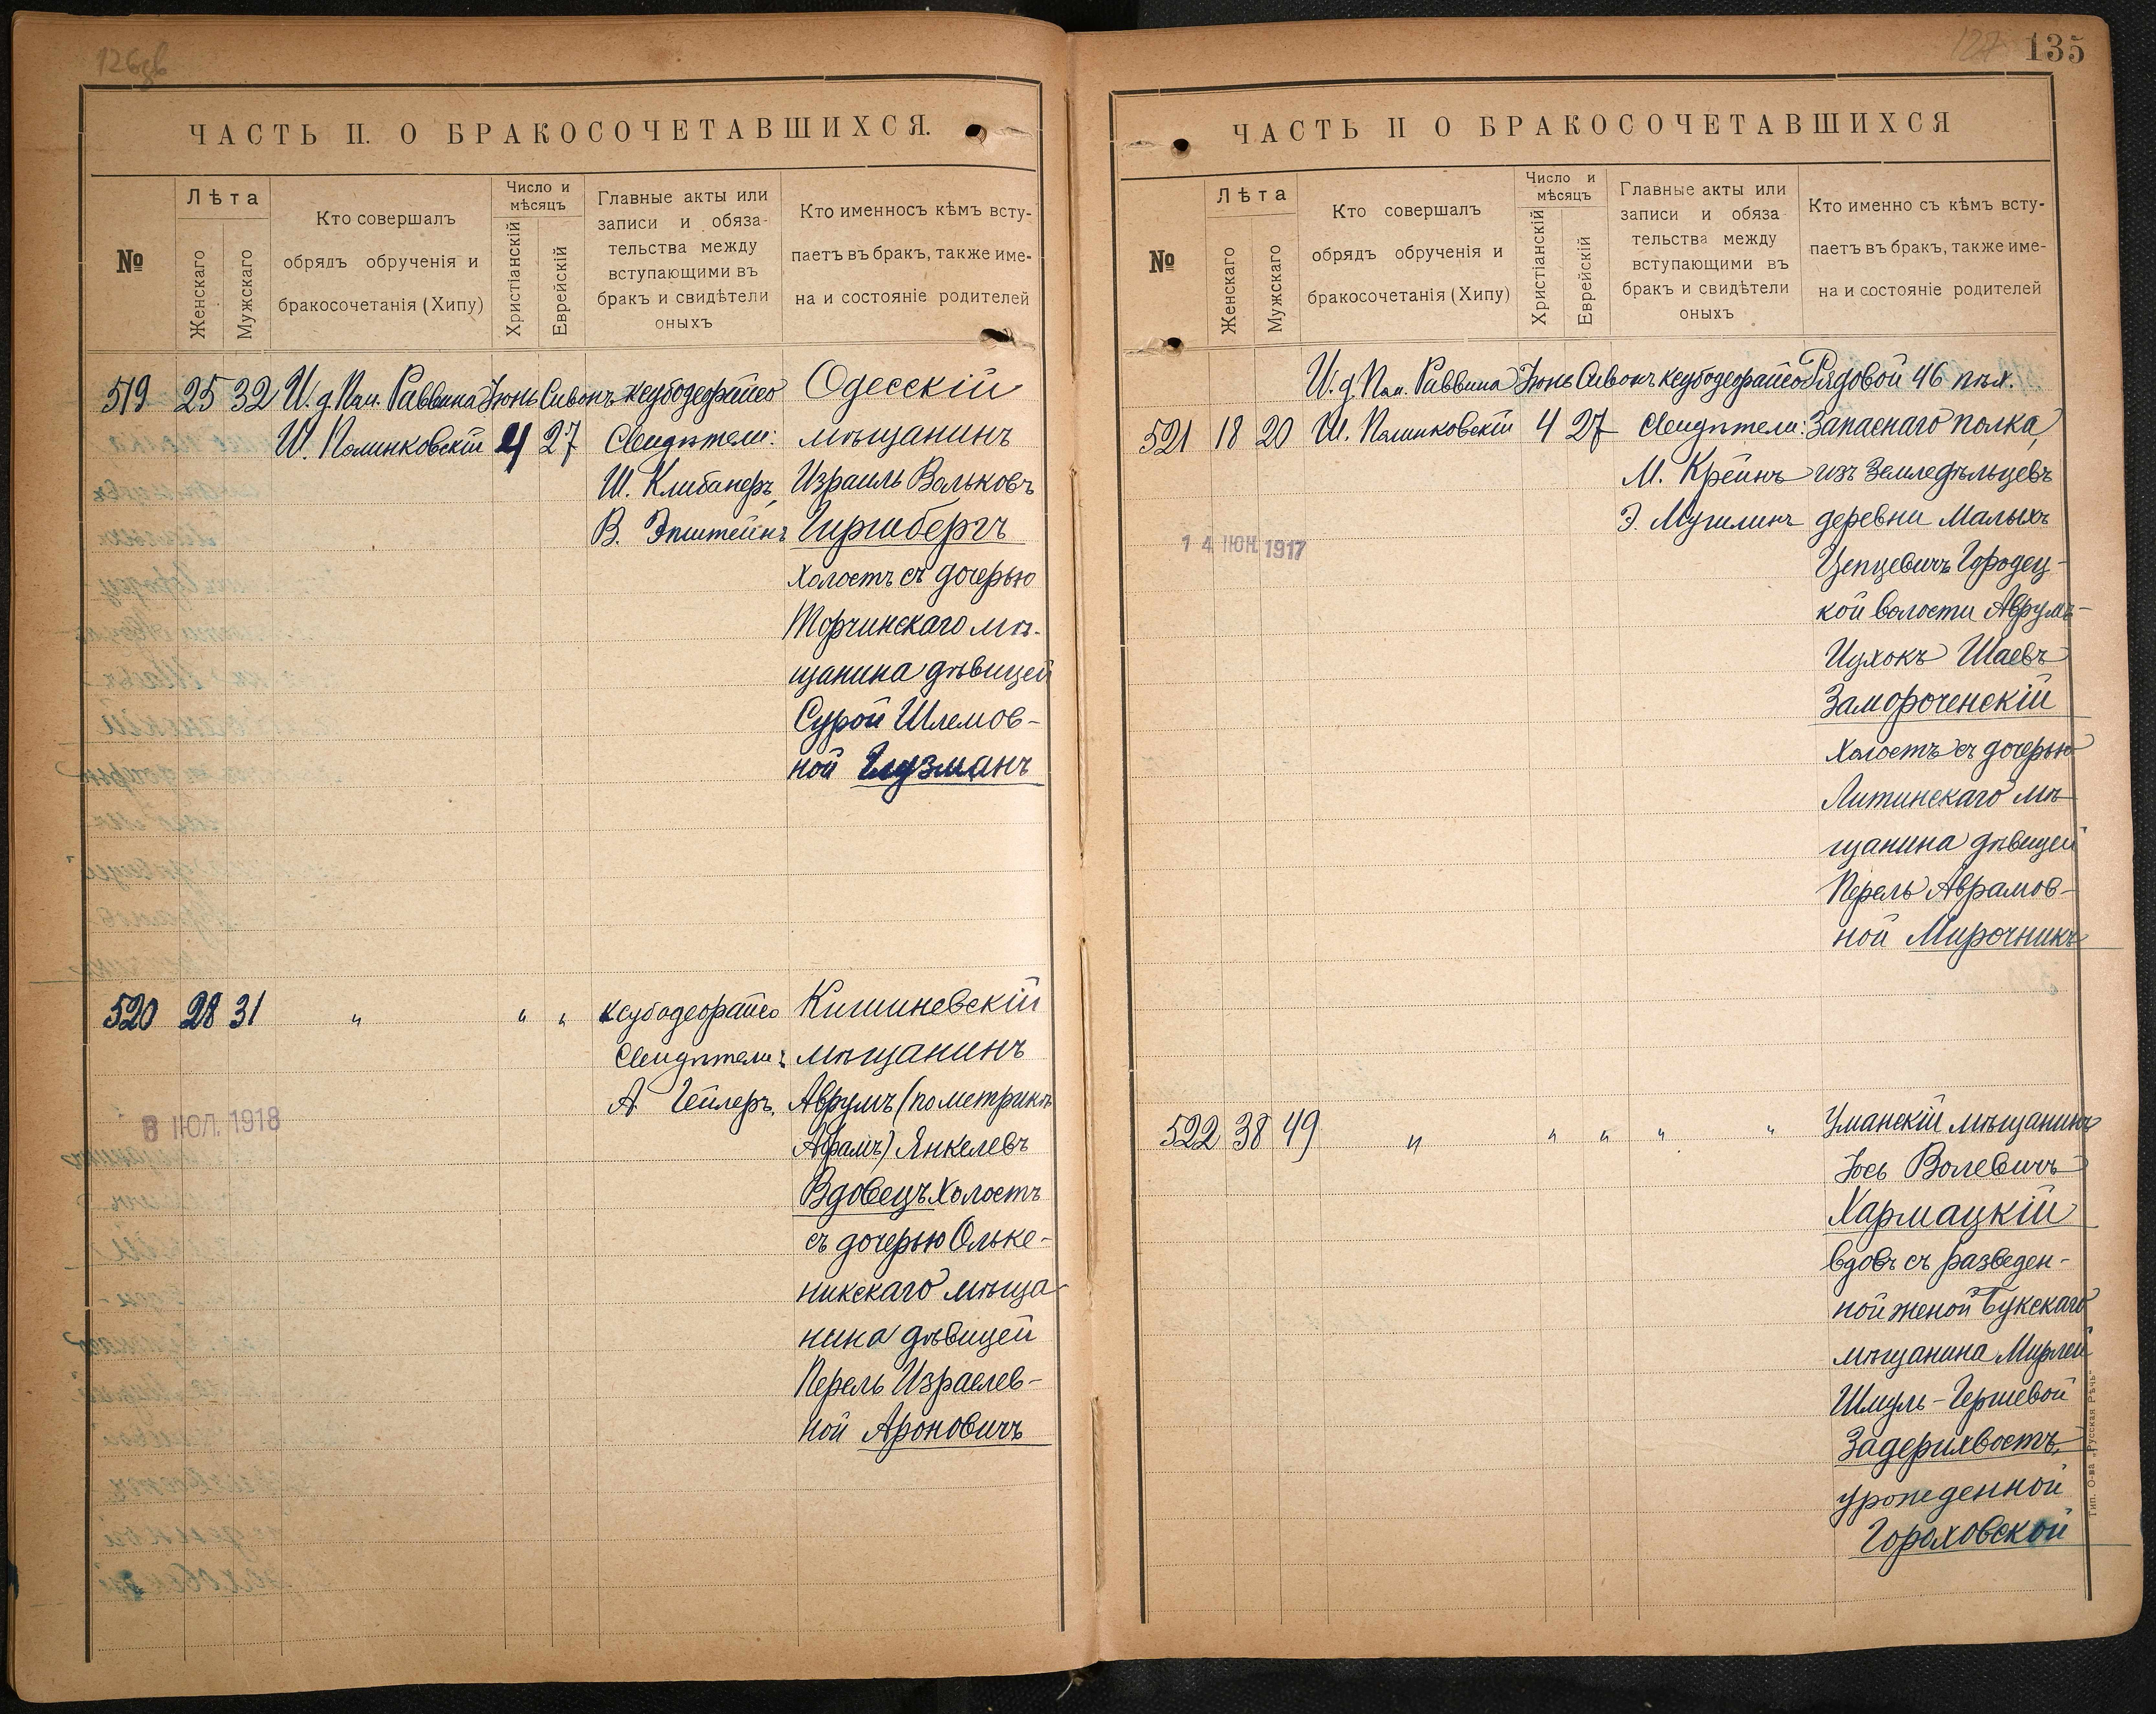 126об
ЧАСТЬ II. О БРАКОСОЧЕТАВШИХСЯ.
№
Лѣта
Женскаго
Мужскаго
Кто совершалъ
обрядъ обрученія и
бракосочетанія (Хипу)
Число и
мѣсяцъ
Христіанскій
Еврейскій
Главные акты или
записи и обяза-
тельства между
вступающими въ
бракъ и свидѣтели
оныхъ
Кто именносъ кѣмъ всту-
паетъ въ бракъ, также име-
на и состояніе родителей
519 25 32 И. д. Пом. Раввина Іюнь Сивонъ Ксубодеорайсо Одесскій
Ш. Полинковскій 4 27 Свидѣтели: мѣщанинъ
Ш. Клибанеръ, Израиль Вольковъ
В. Эпштейнъ Гиршбергъ
холостъ съ дочерью
Торчинскаго мѣ-
щанина дѣвицей
Сурой Шлемов-
ной Глузманъ
520 28 31 " " " Ксубодеорайсо Кишиневскій
Свидѣтели: мѣщанинъ
А. Гейлеръ. Аврумъ (по метрикѣ
Абрамъ) Янкелевъ
Вдовецъ холостъ
съ дочерью Ольке-
никскаго мѣща-
нина дѣвицей
Перель Израелев-
ной Ароновичъ
8 ІЮЛ. 1918
127
135
ЧАСТЬ II О БРАКОСОЧЕТАВШИХСЯ
№
Лѣта
Женскаго
Мужскаго
Кто совершалъ
обрядъ обрученія и
бракосочетанія (Хипу)
Число и
мѣсяцъ
Христіанскій
Еврейскій
Главные акты или
записи и обяза
тельства между
вступающими въ
бракъ и свидѣтели
оныхъ
Кто именно съ кѣмъ всту-
паетъ въ бракъ, также име-
на и состояніе родителей
И. д. Пом. Раввина Іюнь Сивонъ Ксубодеорайсо Рядовой 46 пѣх.
521 18 20 Ш. Полинковскій 4 27 Свидѣтели: Запаснаго полка,
М. Крейнъ изъ Земледѣльцевъ
Э. Мугилинъ деревни Малыхъ
14 ІЮН. 1917
Цепцевичъ Городец-
кой волости Аврумъ-
Ицхокъ Шаевъ
Замороченскій
холостъ съ дочерью
Литинскаго мѣ-
щанина дѣвицей
Перель Аврамов-
ной Мирочникъ
522 38 49 " " " " " Уманскій мѣщанинъ
Іось Волевичъ
Хармацкій
вдовъ съ разведен-
ной женой Букскаго
мѣщанина Мирлей
Шмуль-Гершевой
Задерихвостъ,
урожденной
Гороховской
Тип. О-ва „Русская Рѣчь"